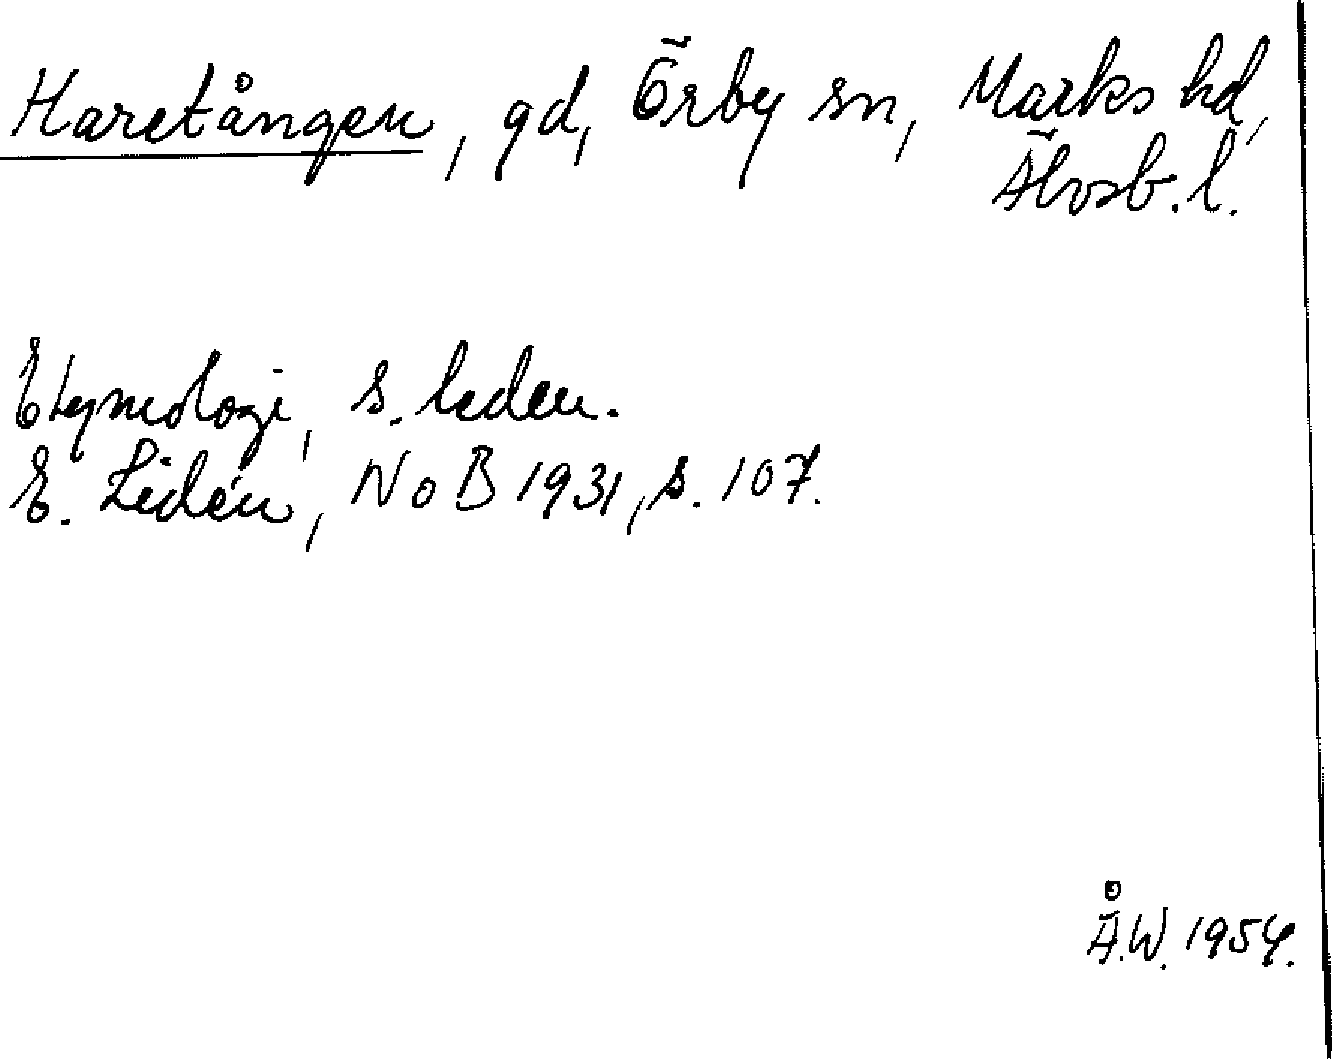 Haretången, gd, Örby sn, Marks hd,
Älvsb. l.
Etymologi, s. leden.
E. Lidén, NoB 1931, s. 107.
Å.W. 1954.